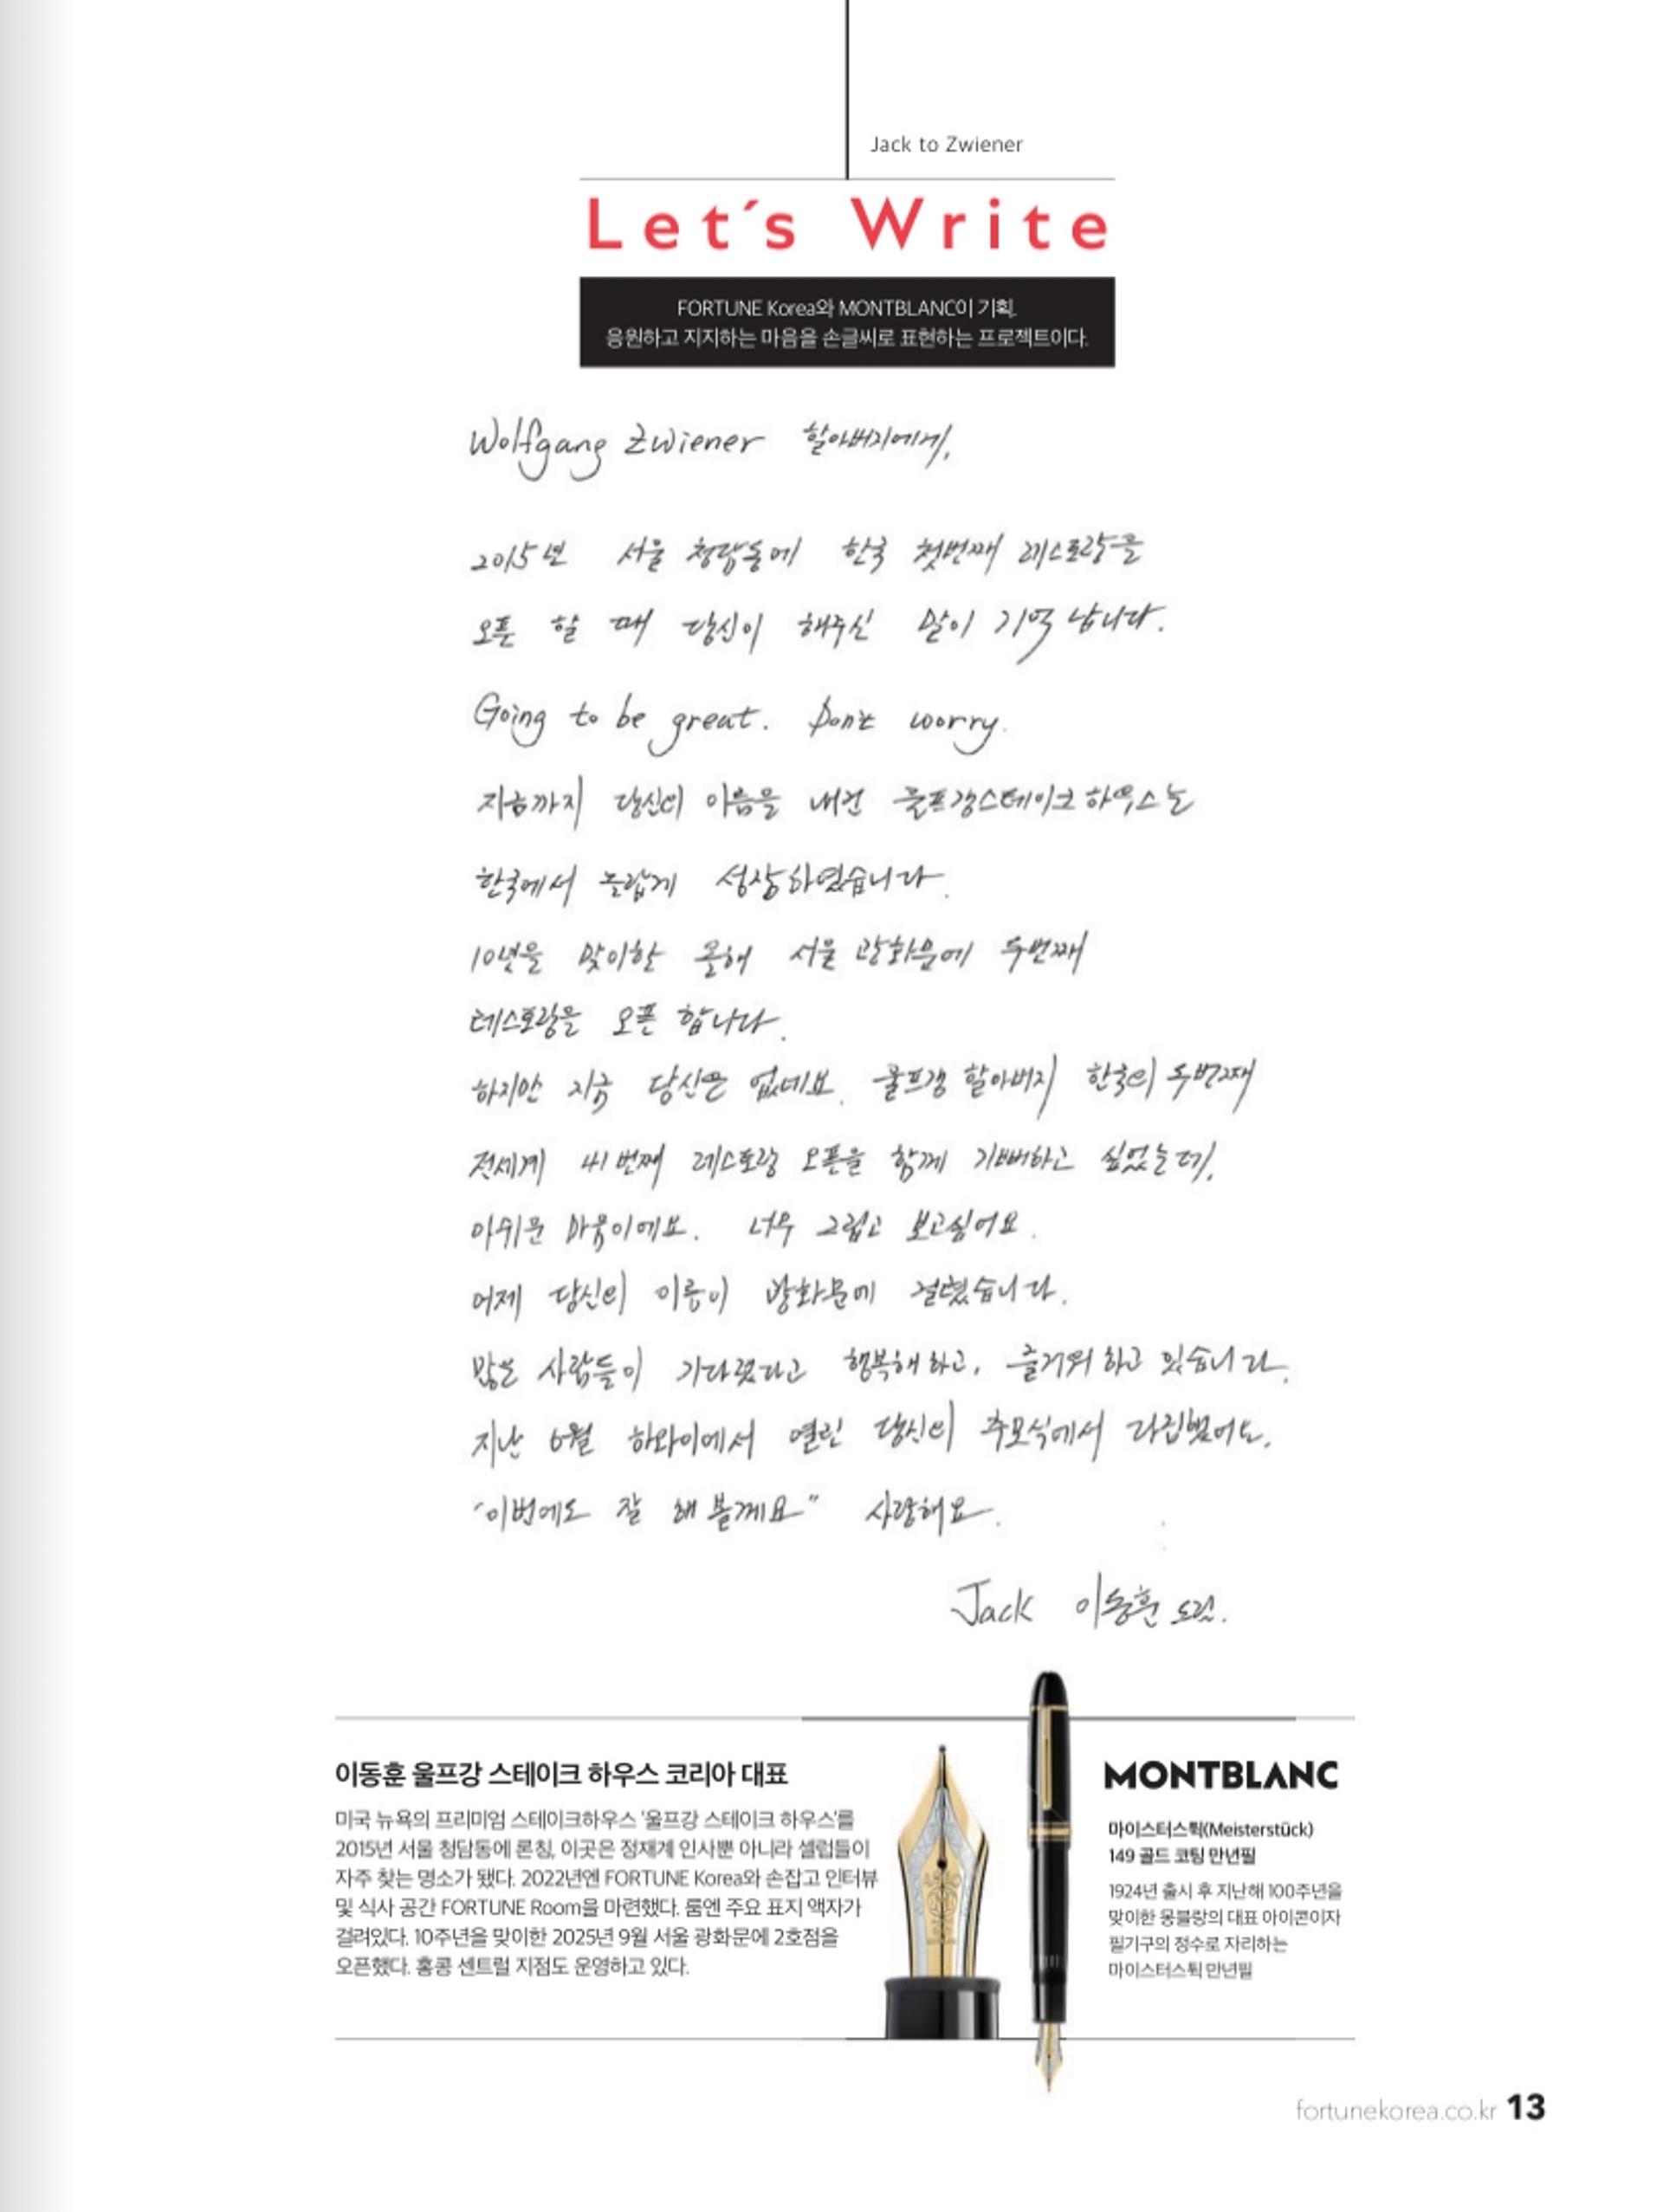 Jack to Zwiener
Let's Write
FORTUNE Korea와 MONTBLANC이 기획.
응원하고 지지하는 마음을 손글씨로 표현하는 프로젝트이다.
Wolfgang Zwiener 할아버지에게,
2015년 서울 청담동에 한국 첫번째 레스토랑을
오픈 할 때 당신이 해주신 말이 기억 납니다.
Going to be great. Don't worry.
지금까지 당신의 이름을 내건 울프강스테이크하우스는
한국에서 놀랍게 성장하였습니다.
10년을 맞이한 올해 서울 광화문에 두번째
레스토랑을 오픈 합니다.
하지만 지금 당신은 없네요. 울프강 할아버지 한국의 두번째
전세계 41번째 레스토랑 오픈을 함께 기뻐하고 싶었는데,
아쉬운 마음이에요. 너무 그립고 보고싶어요.
어제 당신의 이름이 광화문에 걸렸습니다.
많은 사람들이 기다렸다고 행복해 하고, 즐거워 하고 있습니다.
지난 6월 하와이에서 열린 당신의 추모식에서 다짐했어요.
"이번에도 잘 해 볼께요" 사랑해요.
Jack 이동훈 드림.
이동훈 울프강 스테이크 하우스 코리아 대표
미국 뉴욕의 프리미엄 스테이크하우스 '울프강 스테이크 하우스'를
2015년 서울 청담동에 론칭, 이곳은 정재계 인사뿐 아니라 셀럽들이
자주 찾는 명소가 됐다. 2022년엔 FORTUNE Korea와 손잡고 인터뷰
및 식사 공간 FORTUNE Room을 마련했다. 룸엔 주요 표지 액자가
걸려있다. 10주년을 맞이한 2025년 9월 서울 광화문에 2호점을
오픈했다. 홍콩 센트럴 지점도 운영하고 있다.
MONTBLANC
마이스터스튁(Meisterstück)
149 골드 코팅 만년필
1924년 출시 후 지난해 100주년을
맞이한 몽블랑의 대표 아이콘이자
필기구의 정수로 자리하는
마이스터스튁 만년필
fortunekorea.co.kr 13